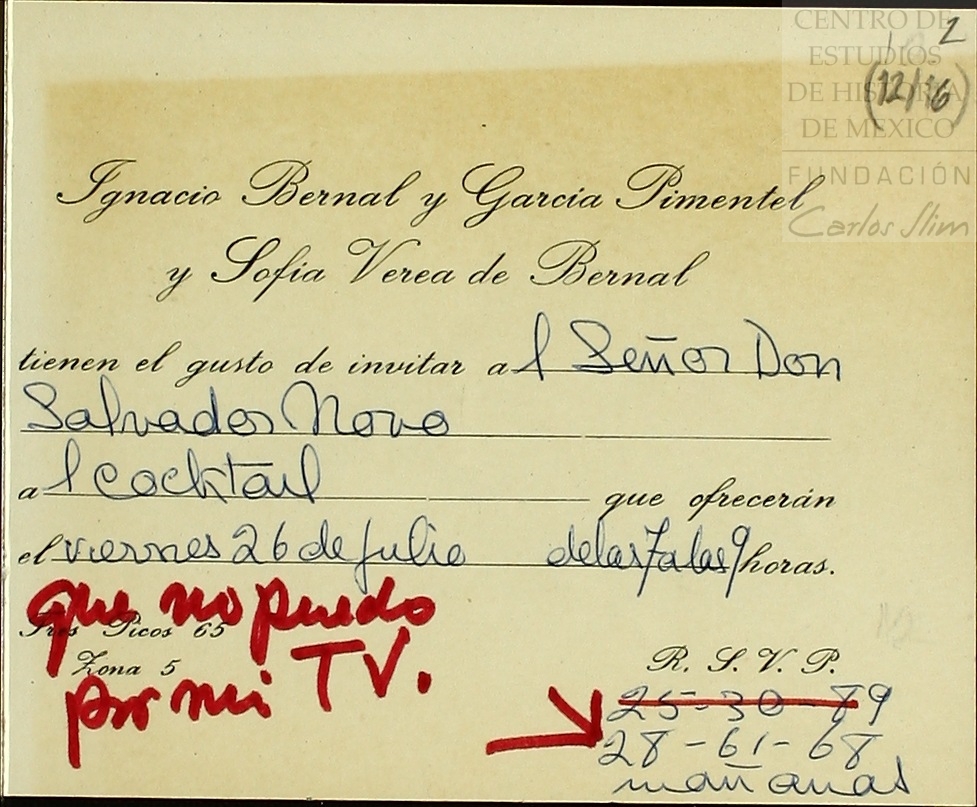 CENTRO DE
ESTUDIOS
DE HISTORIA
DE MEXICO
FUNDACIÓN
Carlos Slim
2
(12/16)
Ignacio Bernal y García Pimentel
y Sofía Verea de Bernal
tienen el gusto de invitar al Señor Don
Salvador Novo
al Cocktail que ofrecerán
el viernes 26 de julio de las 7 a las 9 horas.
que no puedo
Tres Picos 65
Zona 5
por mi TV.
R. S. V. P.
25-30-89
28-61-68
mañanas